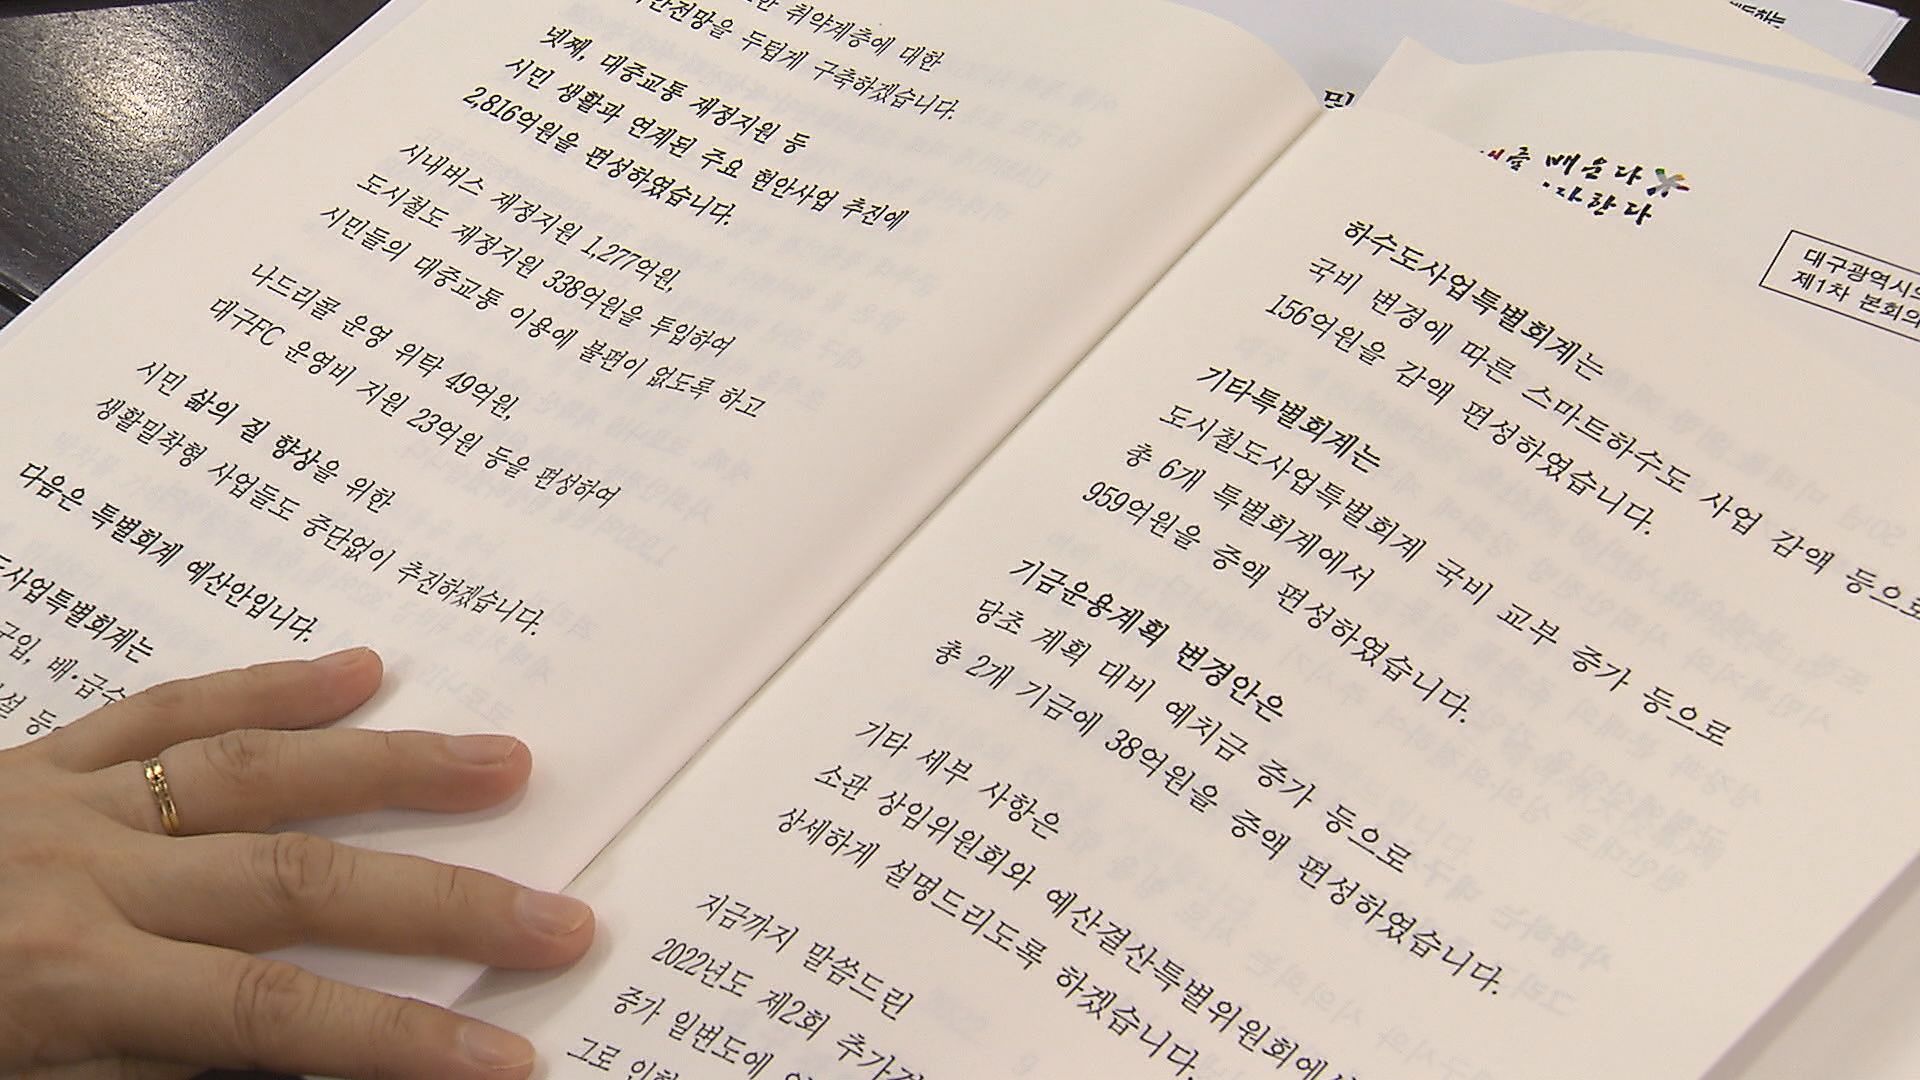 취약계층에 대한
두텁게 구축하겠습니다.
넷째, 대중교통 재정지원 등
시민 생활과 연계된 주요 현안사업 추진에
2,816억원을 편성하였습니다.
시내버스 재정지원 1,277억원,
도시철도 재정지원 338억원을 투입하여
시민들의 대중교통 이용에 불편이 없도록 하고
나드리콜 운영 위탁 49억원,
대구FC 운영비 지원 23억원 등을 편성하여
시민 삶의 질 향상을 위한
생활밀착형 사업들도 중단없이 추진하겠습니다.
다음은 특별회계 예산안입니다.
도사업특별회계는
구입, 배·급수
설 등
배운다
자란다
대구광역시의
제1차 본회의
하수도사업특별회계는
국비 변경에 따른 스마트하수도 사업 감액 등으로
156억원을 감액 편성하였습니다.
기타특별회계는
도시철도사업특별회계 국비 교부 증가 등으로
총 6개 특별회계에서
959억원을 증액 편성하였습니다.
기금운용계획 변경안은
당초 계획 대비 예치금 증가 등으로
총 2개 기금에 38억원을 증액 편성하였습니다.
기타 세부 사항은
소관 상임위원회와 예산결산특별위원회에서
상세하게 설명드리도록 하겠습니다.
지금까지 말씀드린
2022년도 제2회 추가경
증가 일변도에
그로 인한